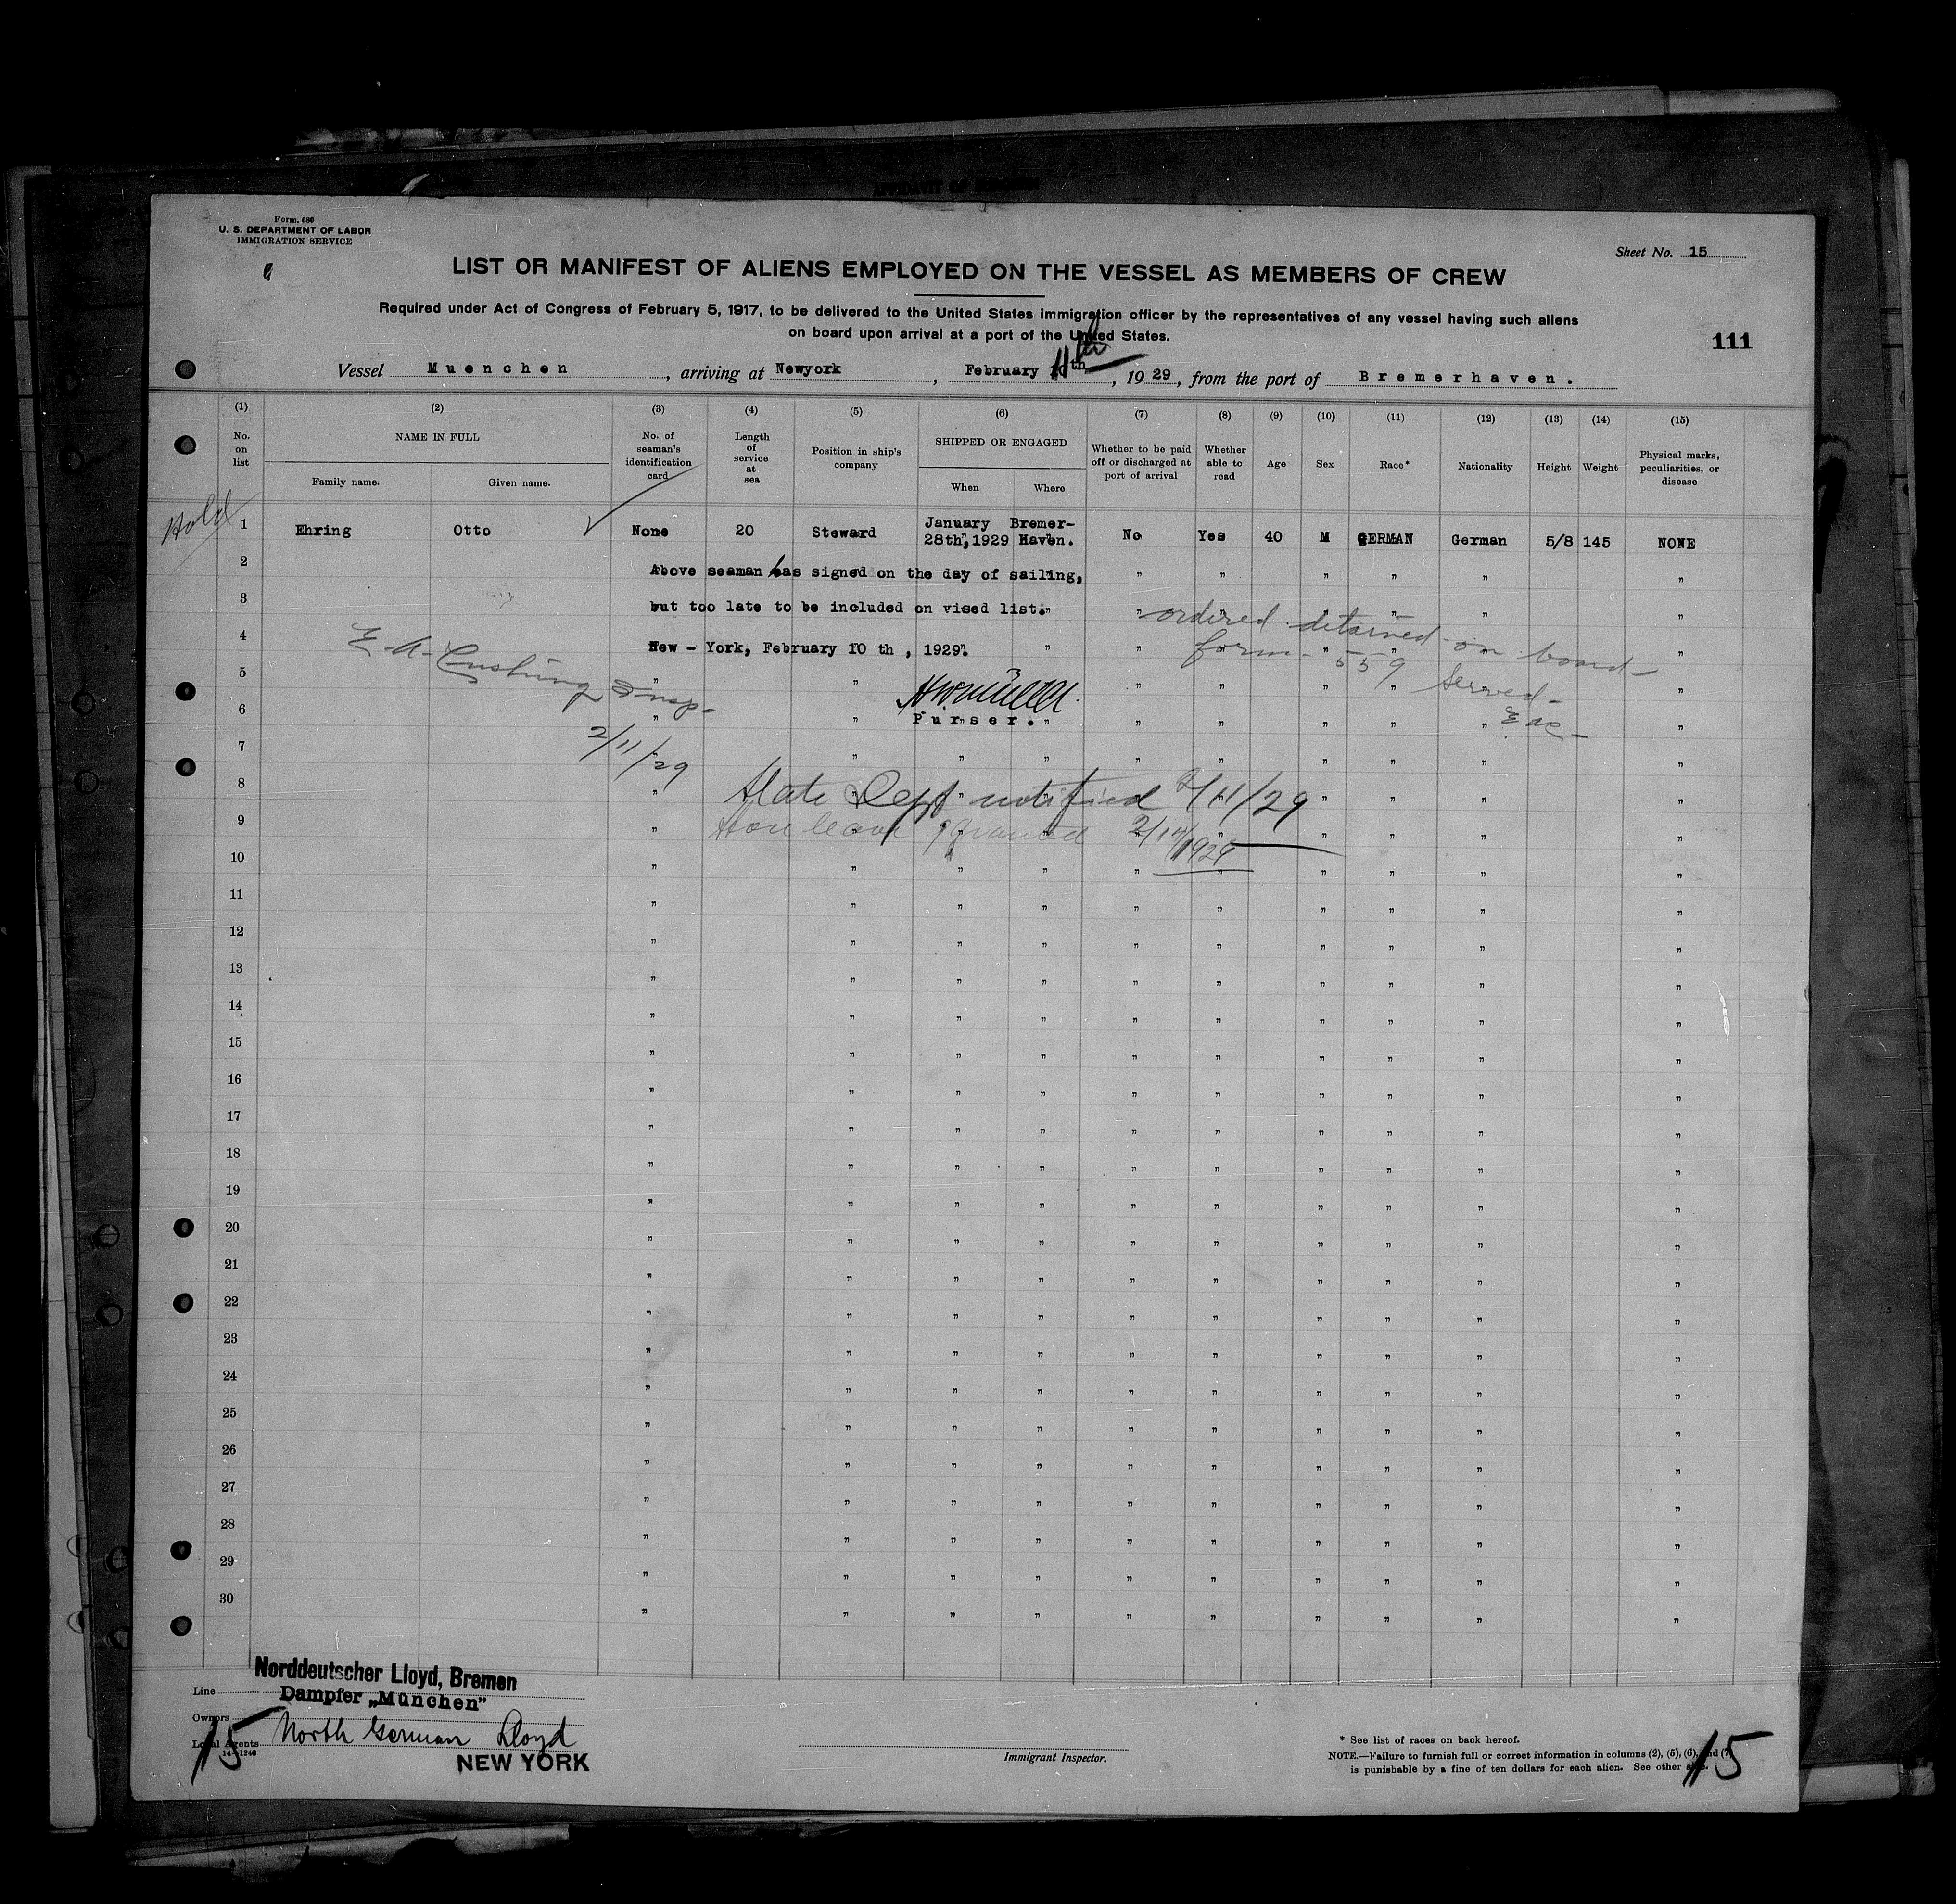 Form. 680
U. S. DEPARTMENT OF LABOR
IMMIGRATION SERVICE
Sheet No. 15
LIST OR MANIFEST OF ALIENS EMPLOYED ON THE VESSEL AS MEMBERS OF CREW
Required under Act of Congress of February 5, 1917, to be delivered to the United States immigration officer by the representatives of any vessel having such aliens
on board upon arrival at a port of the United States.
111
Vessel Muenchen, arriving at Newyork, February 11th, 1929, from the port of Bremerhaven.
(1) (2) (3) (4) (5) (6) (7) (8) (9) (10) (11) (12) (13) (14) (15)
No. on list
NAME IN FULL
Family name. Given name.
No. of seaman's identification card
Length of service at sea
Position in ship's company
SHIPPED OR ENGAGED
When Where
Whether to be paid off or discharged at port of arrival
Whether able to read
Age
Sex
Race*
Nationality
Height
Weight
Physical marks, peculiarities, or disease
Hold
1 Ehring Otto None 20 Steward January 28th, 1929 Bremer-Haven. No Yes 40 M GERMAN German 5/8 145 NONE
2 Above seaman has signed on the day of sailing, " " " " " "
3 but too late to be included on vised list. " " " " " "
ordered detained on board
4 New - York, February 10 th, 1929. " " " " " " "
form - 559 served -
E. A. Cushing Insp.
5 " " " " " " " "
6 " " Purser. " " " " " " "
EAC
2/11/29
7 " " " " " " " " "
8 " State Dept notified 2/11/29 " " " "
9 " granted 2/14/1929 " " "
10 " " " " " " " " " "
11 " " " " " " " " " "
12 " " " " " " " " " "
13 " " " " " " " " " "
14 " " " " " " " " " "
15 " " " " " " " " " "
16 " " " " " " " " " "
17 " " " " " " " " " "
18 " " " " " " " " " "
19 " " " " " " " " " "
20 " " " " " " " " " "
21 " " " " " " " " " "
22 " " " " " " " " " "
23 " " " " " " " " " "
24 " " " " " " " " " "
25 " " " " " " " " " "
26 " " " " " " " " " "
27 " " " " " " " " " "
28 " " " " " " " " " "
29 " " " " " " " " " "
30 " " " " " " " " " "
Line Norddeutscher Lloyd, Bremen
Dampfer „München"
Owners North German Lloyd
Local Agents NEW YORK
14-1240
15
Immigrant Inspector.
* See list of races on back hereof.
NOTE.—Failure to furnish full or correct information in columns (2), (5), (6), and (7)
is punishable by a fine of ten dollars for each alien. See other side.
15